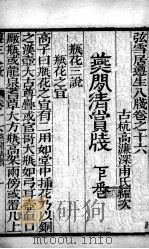 弦雪居遵生八牋卷之十六
古杭高濂深甫氏編次
燕閒清賞牋下卷
瓶花三說
瓶花之宜
高子曰瓶花之宜有二用如堂中插花乃以銅
之漢壺大古尊罍或官哥大瓶如弓耳壺直口
厰瓶或龍泉蓍草大方瓶高架兩傍或置几上